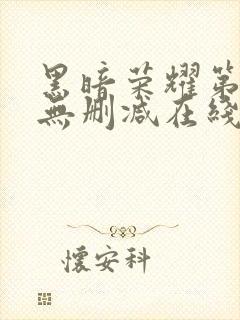 黑暗荣耀第
無删减在綫
懷安科